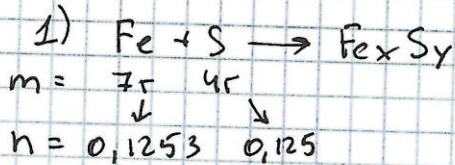 1) Fe + S → FexSy
m = 7г 4г
↓ ↘
n = 0,1253 0,125